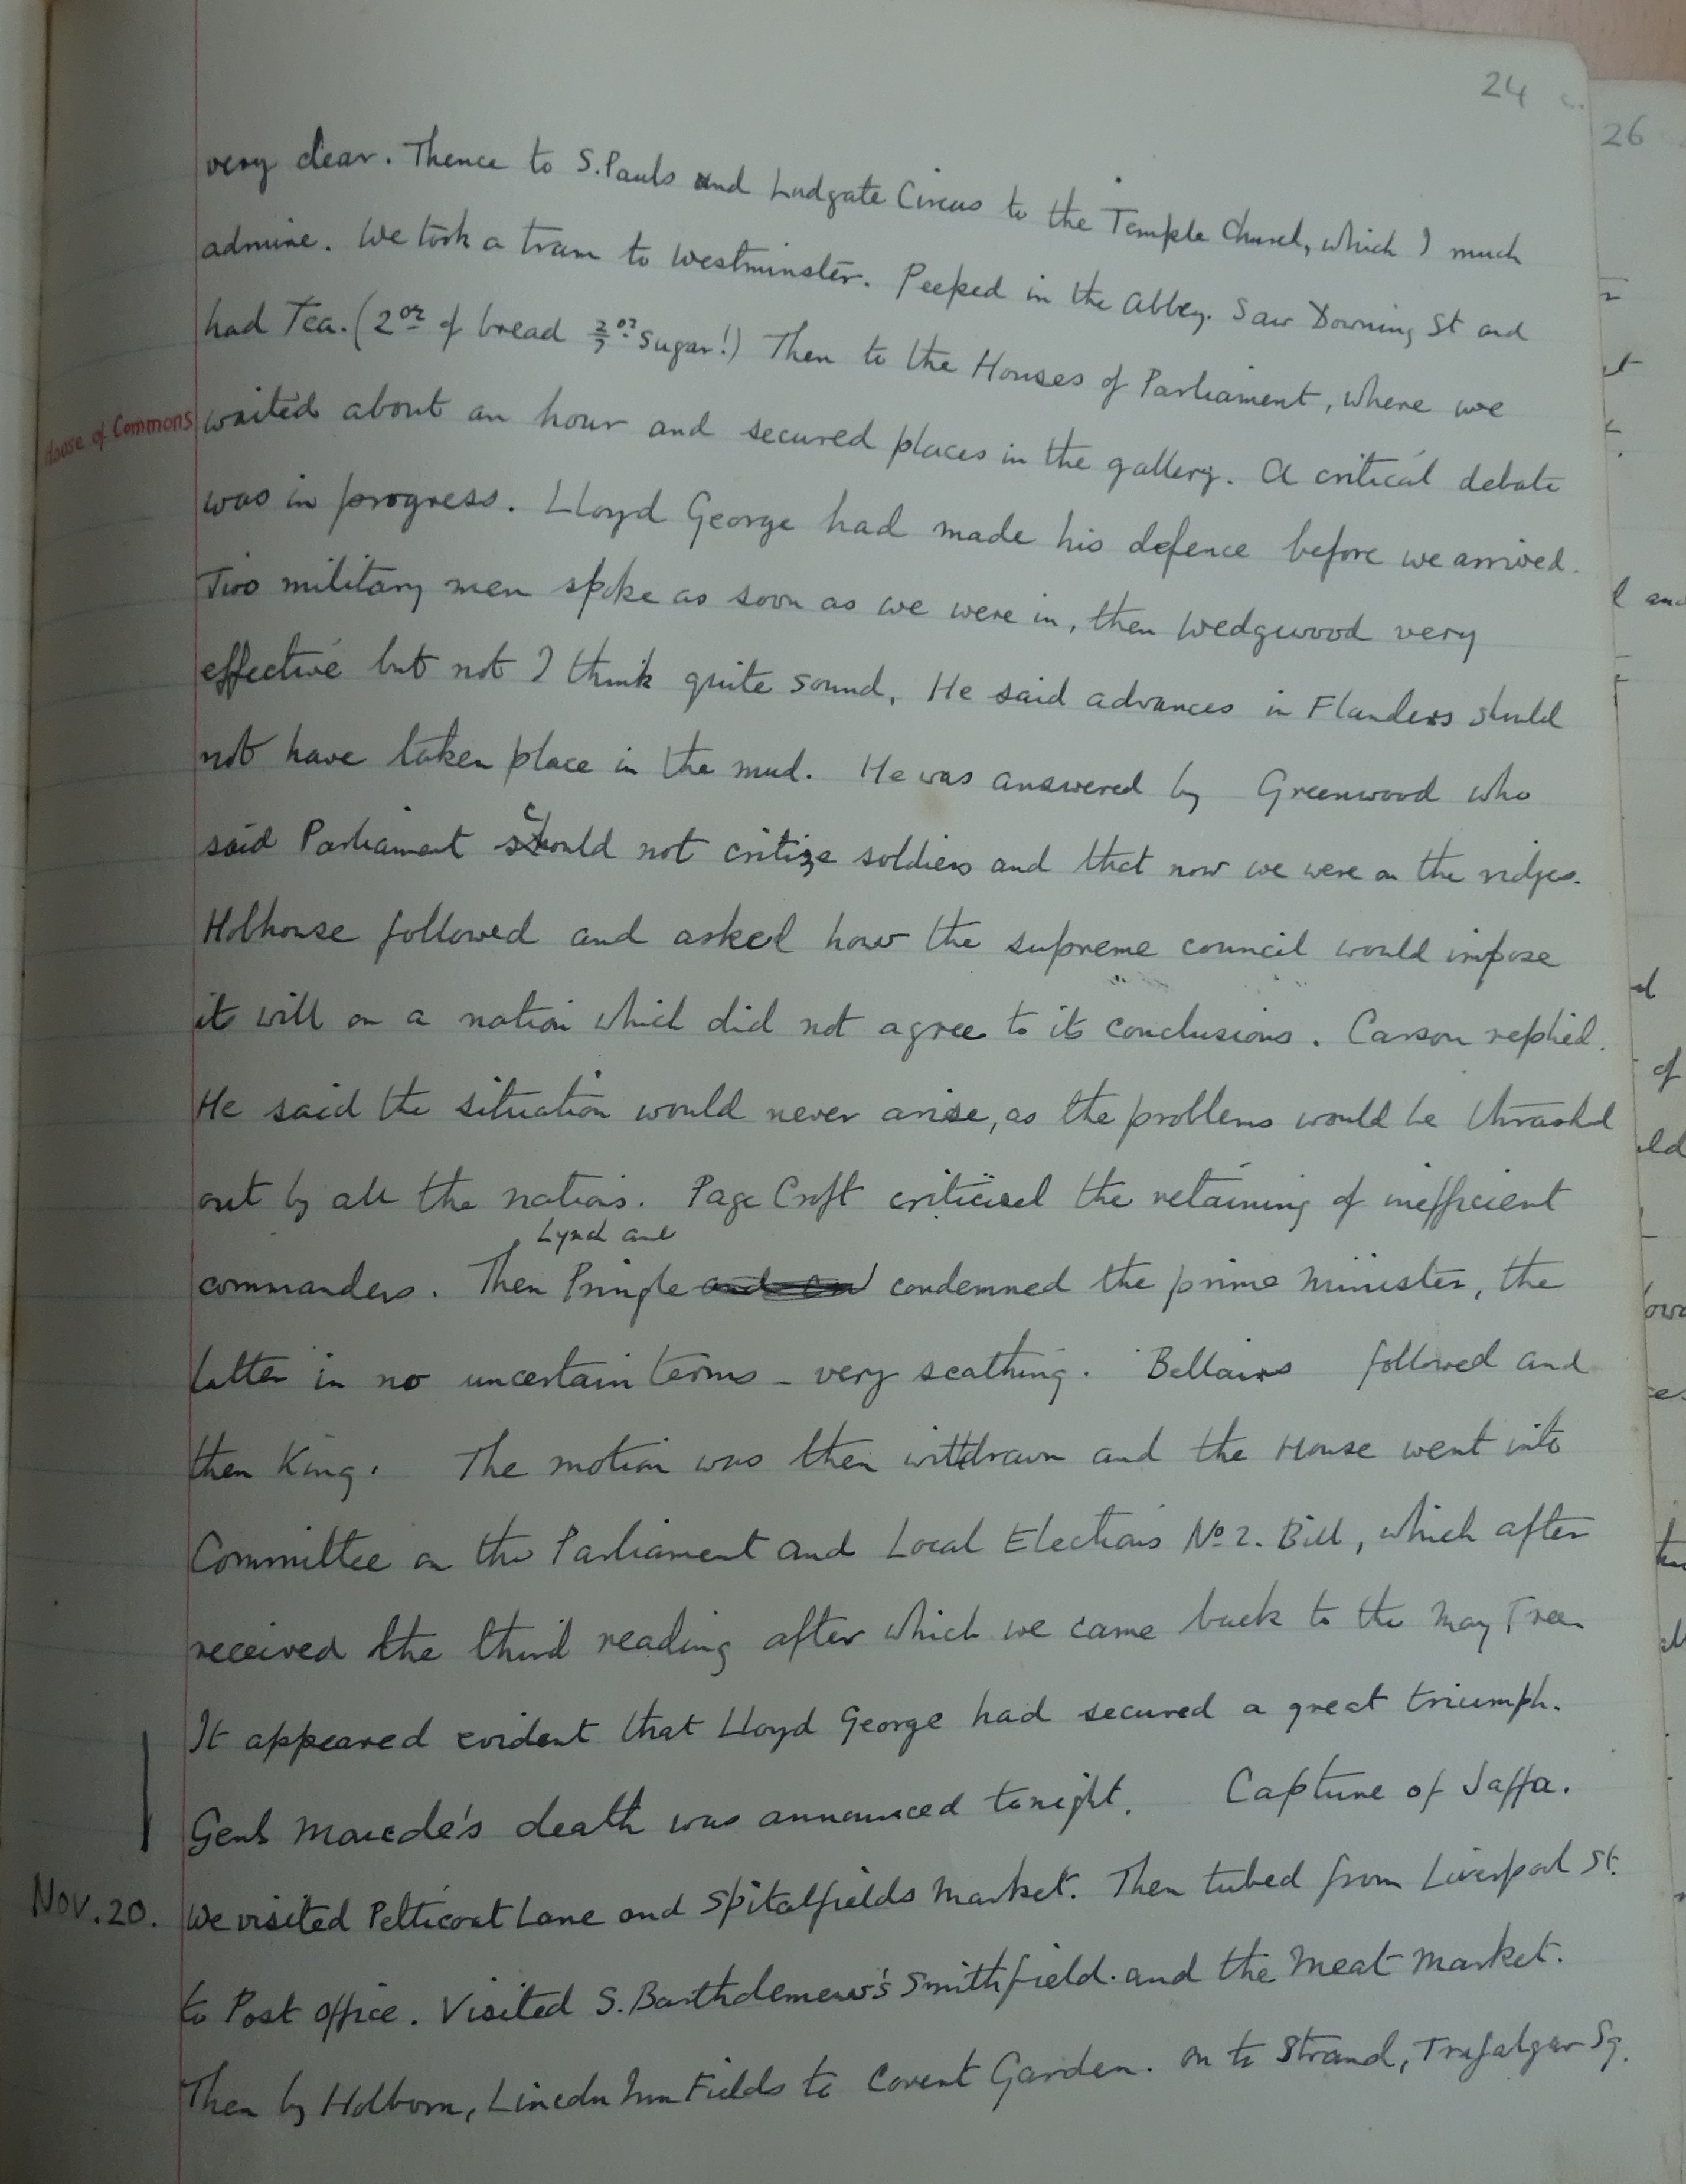 24
26
very clear. Thence to S. Pauls and Ludgate Circus to the Temple Church, which I much
admire. We took a tram to Westminster. Peeped in the Abbey. Saw Downing St and
had Tea. (2 oz of bread 2/7 oz sugar!) Then to the Houses of Parliament, where we
House of Commons
waited about an hour and secured places in the gallery. A critical debate
was in progress. Lloyd George had made his defence before we arrived.
Two military men spoke as soon as we were in, then Wedgwood very
effective but not I think quite sound. He said advances in Flanders should
not have taken place in the mud. He was answered by Greenwood who
said Parliament could not critize soldiers and that now we were on the ridges.
Hobhouse followed and asked how the supreme council would impose
it will on a nation which did not agree to its conclusions. Carson replied.
He said the situation would never arise, as the problems would be thrashed
out by all the nations. Page Croft criticised the retaining of inefficient
commanders. Then Pringle Lynch and condemned the prime Minister, the
latter in no uncertain terms – very scathing. Bellairs followed and
then King. The motion was then withdrawn and the House went into
Committee on the Parliament and Local Elections No 2. Bill, which after
received the third reading after which we came back to the May Tree
It appeared evident that Lloyd George had secured a great triumph.
Genl Maude's death was announced tonight. Capture of Jaffa.
Nov. 20. We visited Petticoat Lane and Spitalfields Market. Then tubed from Liverpool St.
to Post office. Visited S. Bartholemew's Smithfield. and the Meat Market.
Then by Holborn, Lincoln Inn Fields to Covent Garden. on to Strand, Trafalgar Sq.